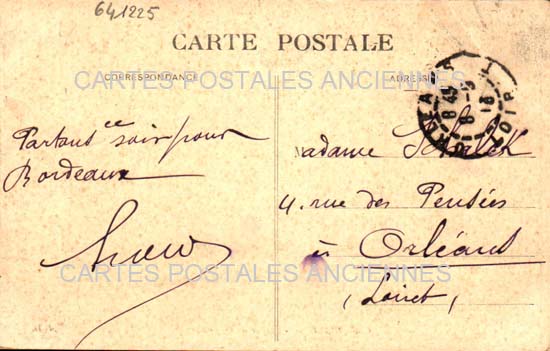 641225
CARTE POSTALE
CORRESPONDANCE
ADRESSE
CARTES POSTALES ANCIENNES
Partons ce soir pour
Bordeaux
Madame
4. rue des Pensées
à Orléans
(Loiret)
CARTES POSTALES ANCIENNES